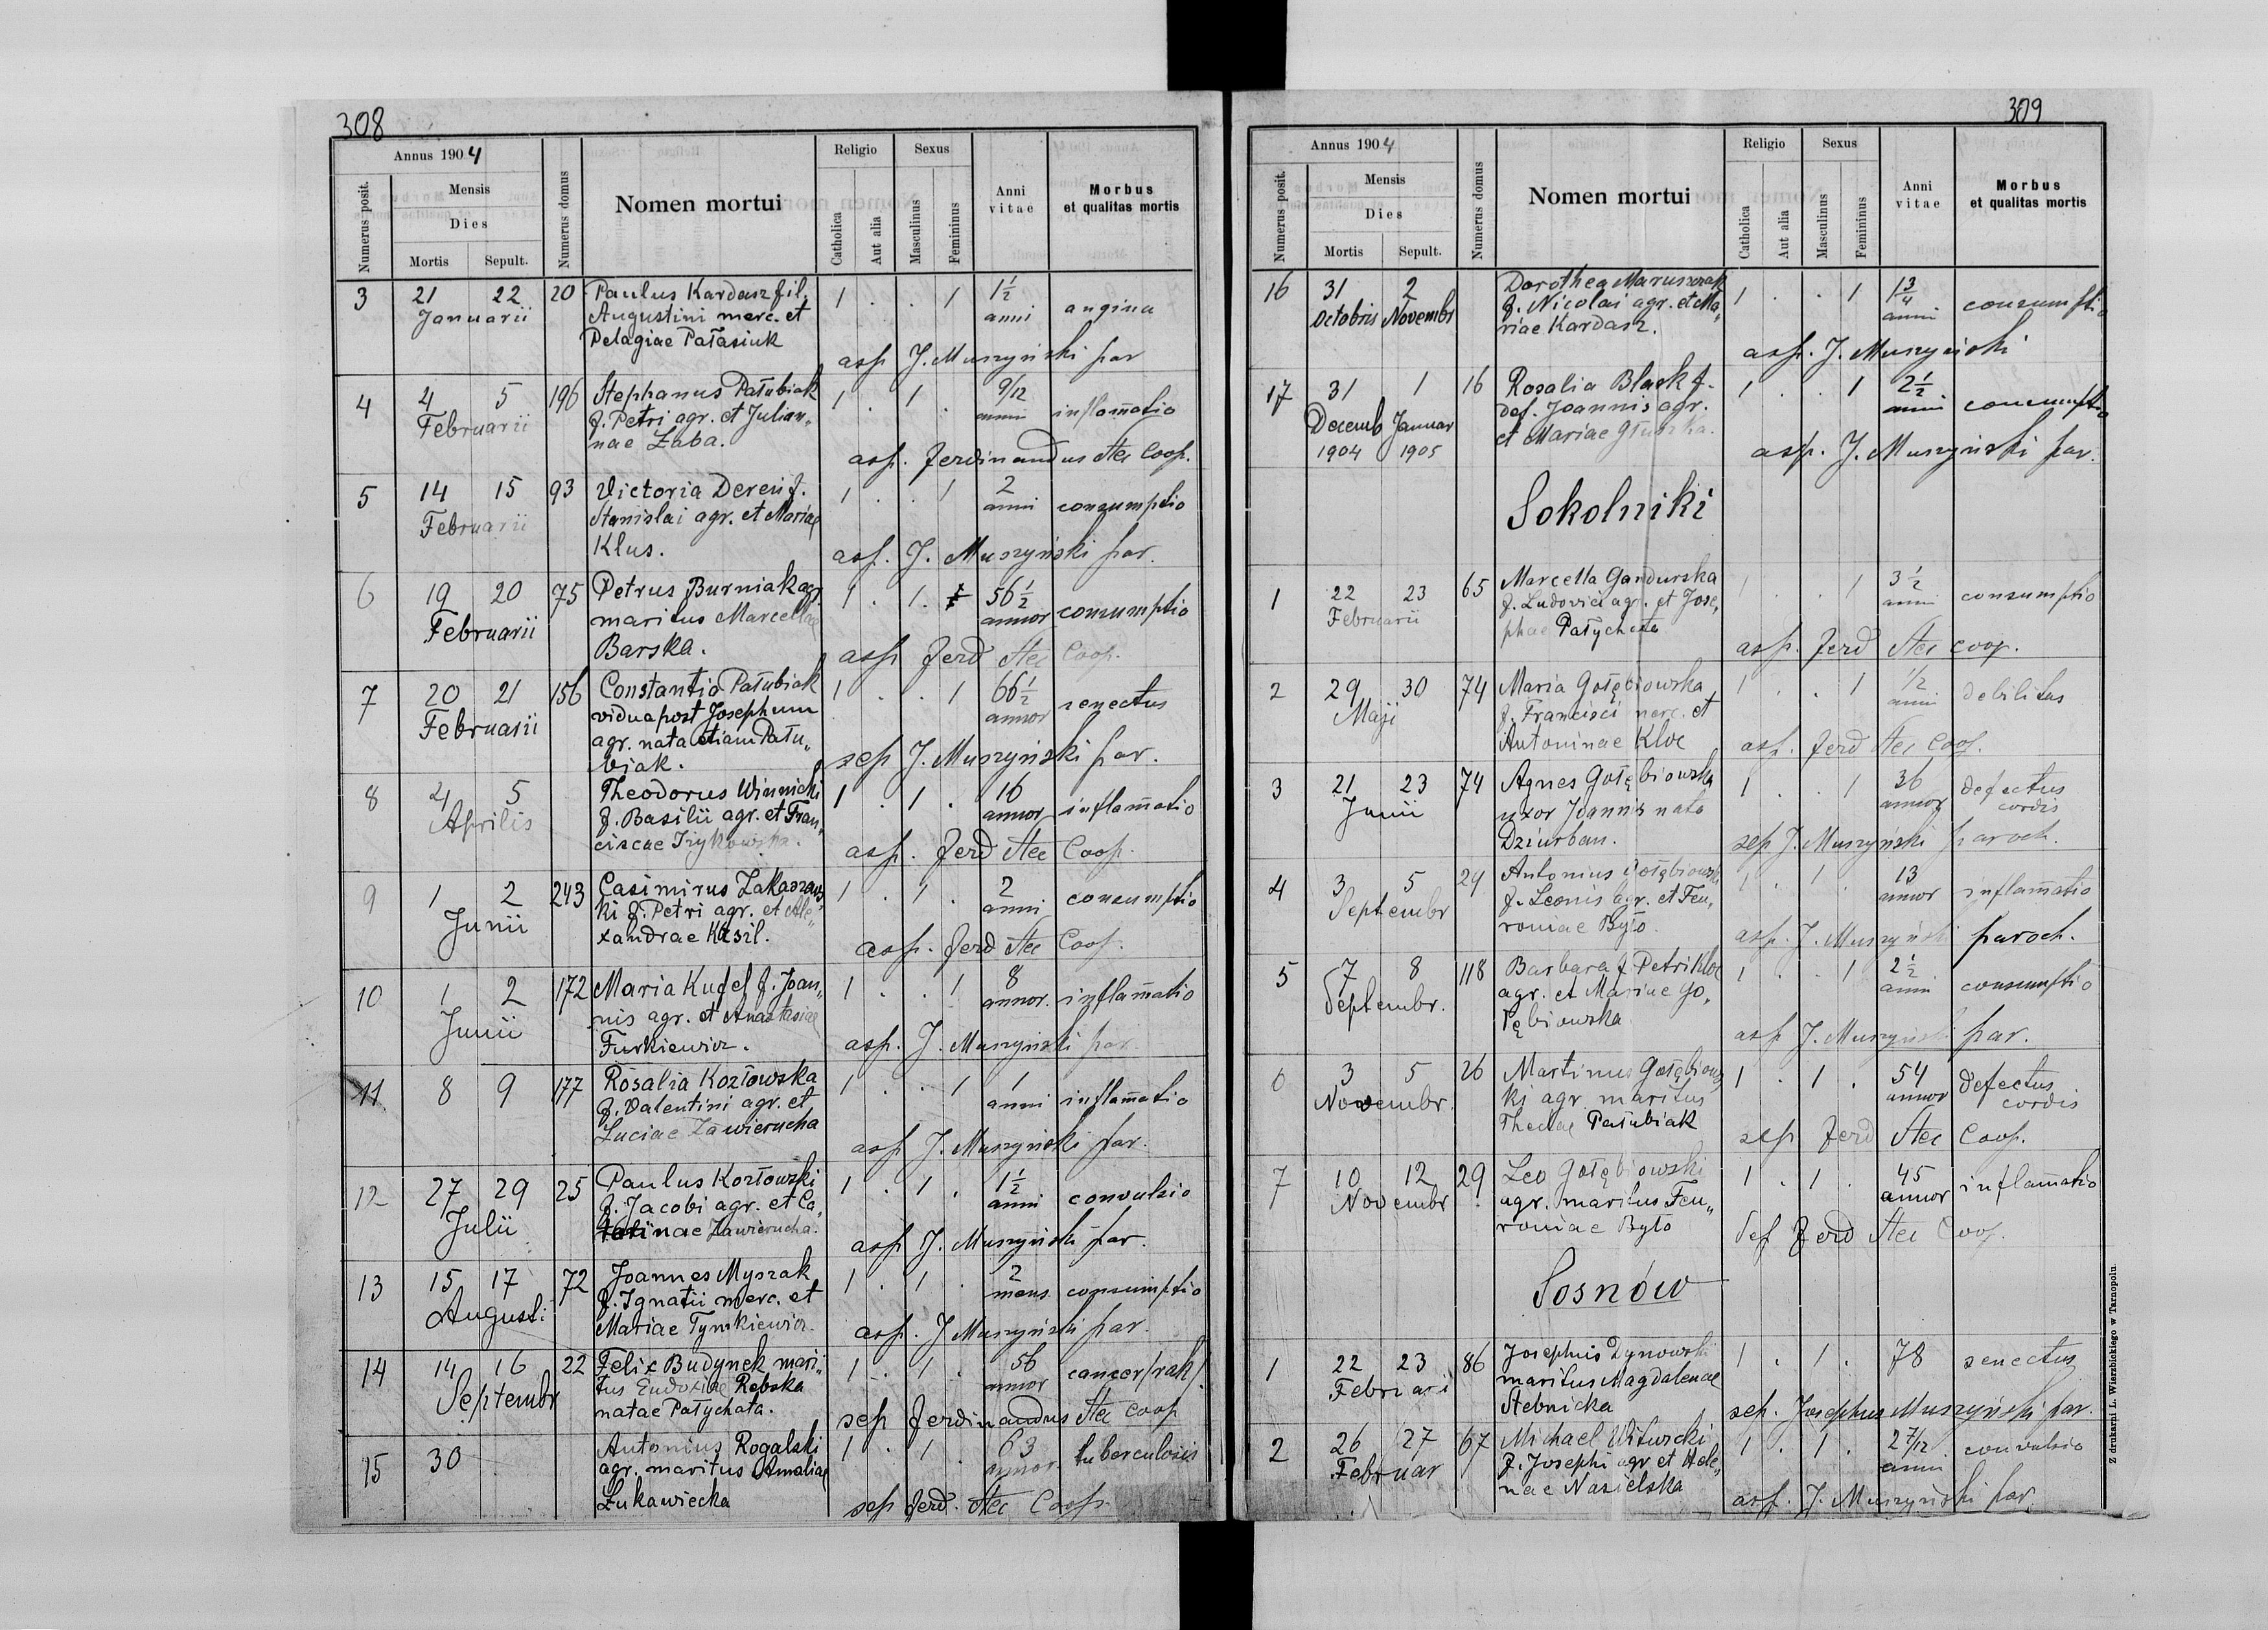 308
Annus 1904
Numerus posit.
Mensis
Dies
Mortis Sepult.
Numerus domus
Nomen mortui
Religio
Catholica
Aut alia
Sexus
Masculinus
Femininus
Anni vitae
Morbus et qualitas mortis
3 21 22 20 Paulus Kardasz fil. 1 . . 1 1 1/2
Januarii Augustini merc. et anni angina
Pelagiae Pałasiuk
asp J. Muszyński par
4 4 5 196 Stephanus Pałubiak 1 . 1 . 9/12
Februarii f. Petri agr. et Julian„ anni inflam̄atio
nae Zaba.
asp. Ferdinandus Stec Coop.
5 14 15 93 Victoria Dereń f. 1 . . 1 2
Februarii Stanislai agr. et Mariae anni consumptio
Klus.
asp. J. Muszyński par.
6 19 20 75 Petrus Burniak agr. 1 . 1 . 56 1/2
Februarii maritus Marcellae annor consumptio
Barska.
asp Ferd Stec Coop.
7 20 21 156 Constantia Pałubiak 1 . . 1 66 1/2
Februarii vidua post Josephum annor senectus
agr. nata etiam Pału„
biak.
sep J. Muszyński par.
8 4 5 Theodorus Winnicki 1 . 1 . 16
Aprilis f. Basilii agr. et Fran„ annor inflam̄atio
ciscae
asp. Ferd Stec Coop.
9 1 2 243 Casimirus Zakaszews„ 1 . 1 . 2
Junii ki f. Petri agr. et Ale„ anni consumptio
xandrae Kisil.
asp. Ferd Stec Coop.
10 1 2 172 Maria Kufel f. Joan„ 1 . . 1 8
Junii nis agr. et Anastasiae annor. inflam̄atio
Furkiewicz.
asp. J. Muszyński par.
11 8 9 177 Rosalia Kozłowska 1 . . 1 1
f. Valentini agr. et anni inflam̄atio
Luciae Zawierucha
asp J. Muszyński par.
12 27 29 25 Paulus Kozłowski 1 . 1 . 1 1/2
Julii f. Jacobi agr. et Ca„ anni convulsio
tarinae Zawierucha.
asp J. Muszyński par.
13 15 17 72 Joannes Myszak 1 . 1 . 2
Augusti f. Ignatii merc. et mens. consumptio
Mariae Tymkiewicz.
asp. J Muszyński par.
14 14 16 22 Felix Budynek mari„ 1 . 1 . 56
Septembr tus Eudoxiae Rębska annor cancer/rak/
natae Pałychata.
sep Ferdinandus Stec coop
15 30 Antonius Rogalski 1 . 1 . 63
agr. maritus Amaliae annor. tuberculosis
Łukawiecka
sep Ferd. Stec Coop.
309
Annus 1904
Numerus posit.
Mensis
Dies
Mortis Sepult.
Numerus domus
Nomen mortui
Religio
Catholica
Aut alia
Sexus
Masculinus
Femininus
Anni vitae
Morbus et qualitas mortis
16 31 2 Dorothea Maruszczak 1 . . 1 1 3/4
Octobris Novembr f. Nicolai agr. et Ma„ anni consumptio
riae Kardasz.
asp. J. Muszyński
17 31 1 16 Rosalia Blask f. 1 . . 1 2 1/2
Decemb Januar def. Joannis agr. anni consumptio
1904 1905 et Mariae Głuszka.
asp. J. Muszyński par.
Sokolniki
1 22 23 65 Marcella Gandurska 1 . . 1 3 1/2
Februarii f. Ludovici agr. et Jose„ anni consumptio
phae Pałychata
asp. Ferd Stec coop.
2 29 30 74 Maria Gołębiowska 1 . . 1 1/2
Maji f. Francisci merc. et anni debilitas
Antoninae Kloc
asp. Ferd Stec Coop.
3 21 23 74 Agnes Gołębiowska 1 . . 1 36
Junii uxor Joannis nata annor defectus cordis
Dziurban.
sep J. Muszyński paroch.
4 3 5 24 Antonius Gołębiowski 1 . 1 . 13
Septembr f. Leonis agr. et Feu„ annor inflam̄atio
roniae Było.
asp. J. Muszyński paroch.
5 7 8 118 Barbara f. Petri Kloc 1 . . 1 2 1/2
Septembr. agr. et Mariae Go„ anni consumptio
łębiowska
asp J. Muszyński par.
6 3 5 26 Martinus Gołębiows„ 1 . 1 . 54
Novembr. ki agr maritus annor defectus cordis
Theclae Pałubiak
sep Ferd Stec Coop.
7 10 12 29 Leo Gołębiowski 1 . 1 . 45
Novembr agr. maritus Feu„ annor inflam̄atio
roniae Było
Sep Ferd Stec Coop.
Sosnów
1 22 23 86 Josephus Dynowski 1 . 1 . 78 senectus
Februari maritus Magdalenae
Stebnicka
sep. Josephus Muszyński par.
2 26 27 67 Michael Witwicki 1 . 1 . 2 7/12 convulsio
Februar f. Josephi agr et Hele„ anni
nae Nasielska
asp. J. Muszyński par.
Z drukarni L. Wierzbickiego w Tarnopolu